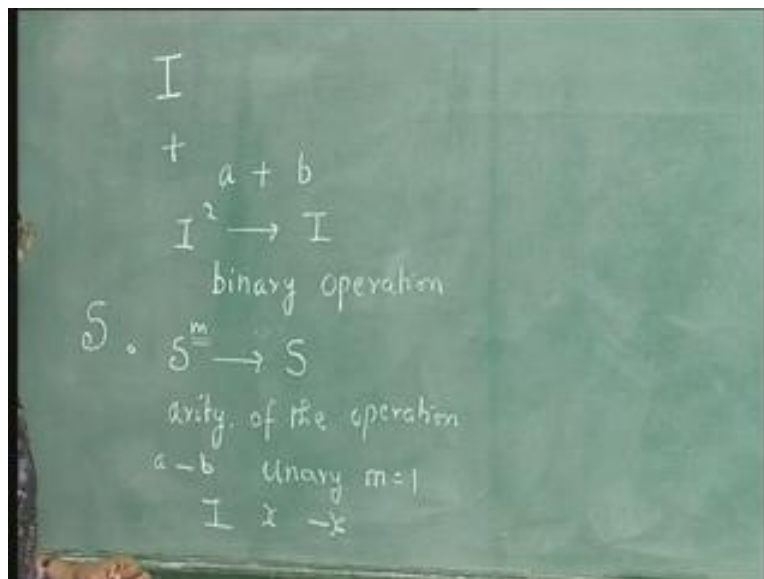 I
+
a + b
I² → I
binary operation
S . Sᵐ → S
arity. of the operation
a - b unary m=1
I x -x